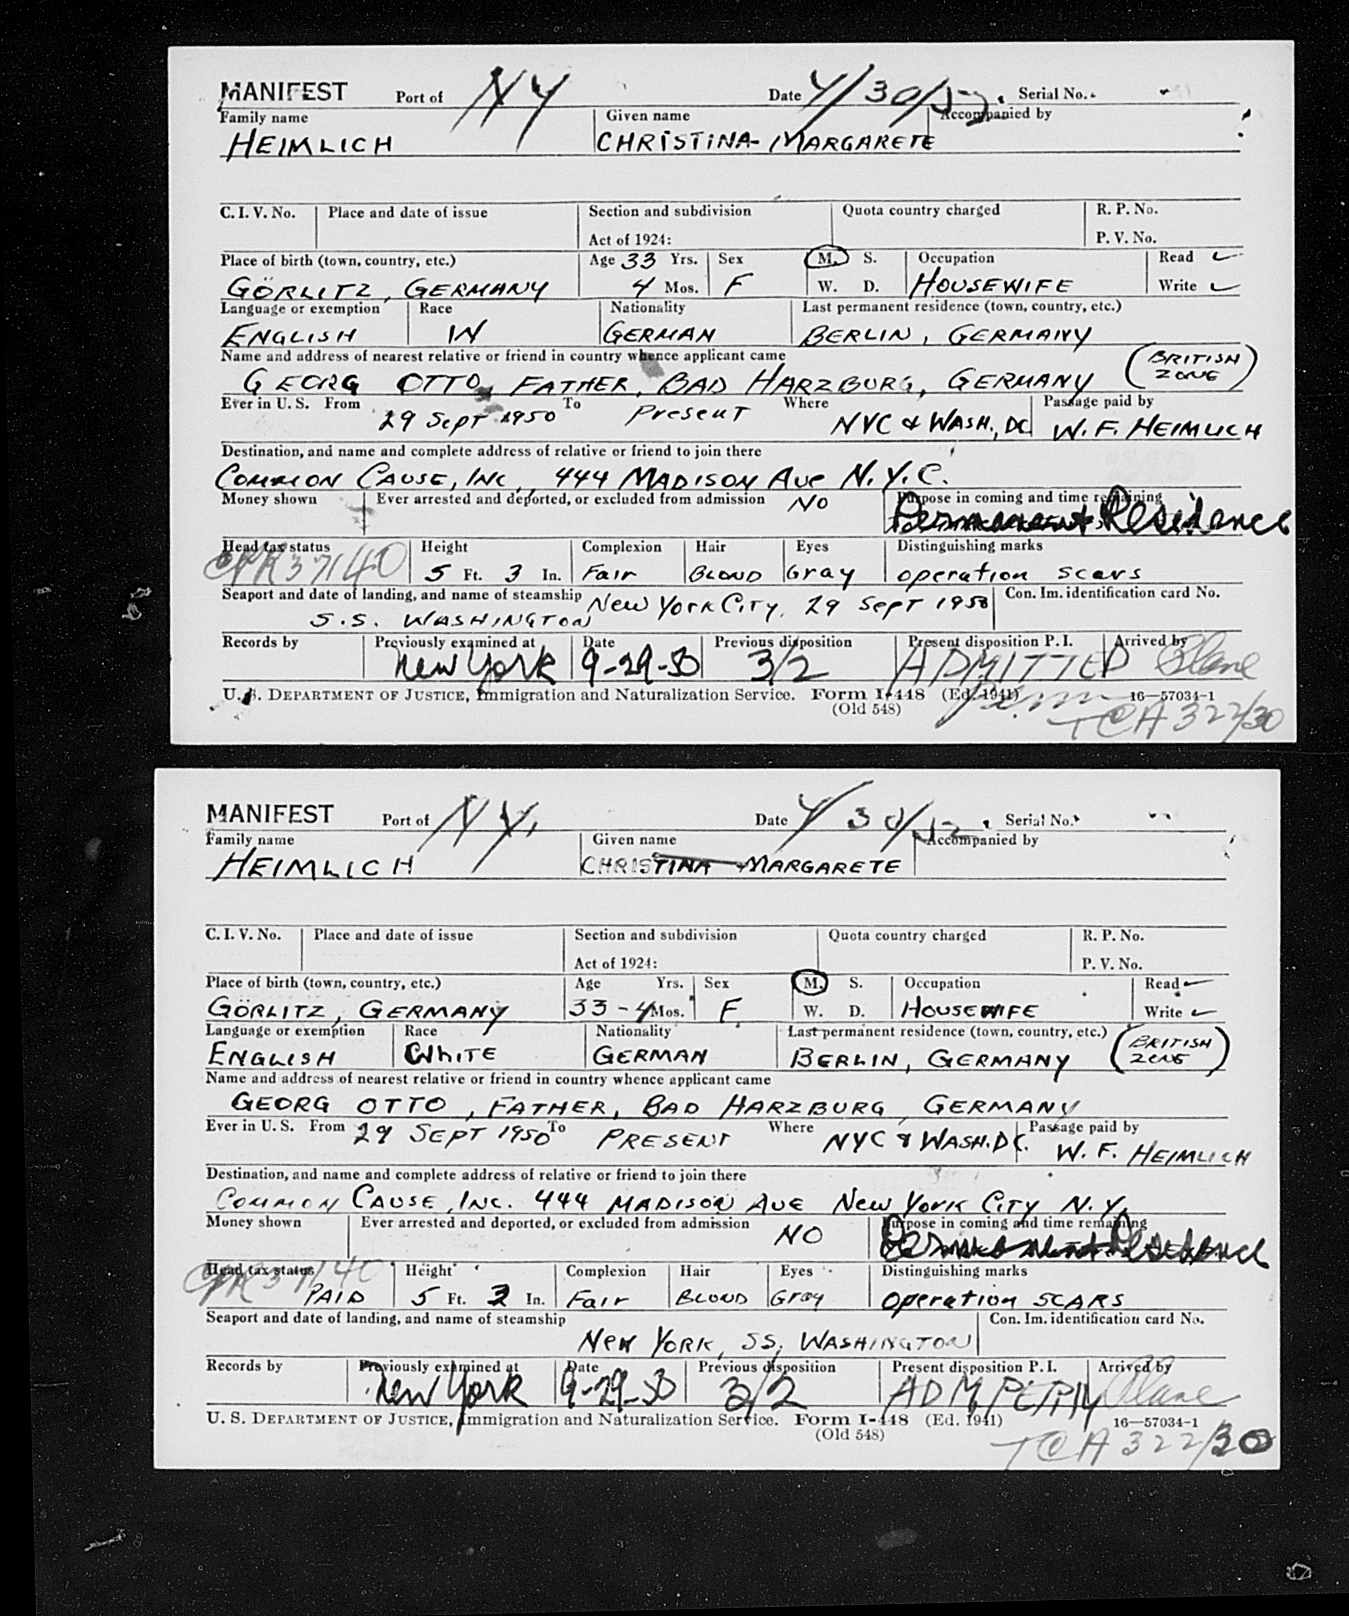 MANIFEST Port of NY Date 4/30/52. Serial No.
Family name Given name Accompanied by
HEIMLICH CHRISTINA-MARGARETE
C. I. V. No. Place and date of issue Section and subdivision Quota country charged R. P. No.
Act of 1924: P. V. No.
Place of birth (town, country, etc.) Age 33 Yrs. Sex M. S. Occupation Read ✓
GÖRLITZ, GERMANY 4 Mos. F W. D. HOUSEWIFE Write ✓
Language or exemption Race Nationality Last permanent residence (town, country, etc.)
ENGLISH W GERMAN BERLIN, GERMANY
Name and address of nearest relative or friend in country whence applicant came
GEORG OTTO, FATHER, BAD HARZBURG, GERMANY (BRITISH ZONE)
Ever in U. S. From To Where Passage paid by
29 Sept 1950 Present NYC & WASH., DC W. F. HEIMLICH
Destination, and name and complete address of relative or friend to join there
COMMON CAUSE, INC., 444 MADISON AVE N.Y.C.
Money shown Ever arrested and deported, or excluded from admission NO Purpose in coming and time remaining
Permanent Residence
Head tax status Height Complexion Hair Eyes Distinguishing marks
5 Ft. 3 In. Fair BLOND Gray operation scars
Seaport and date of landing, and name of steamship New York City, 29 Sept 1950 Con. Im. identification card No.
S.S. WASHINGTON
Records by Previously examined at Date Previous disposition Present disposition P. I. Arrived by
New York 9-29-50 3/2 ADMITTED Plane
U. S. DEPARTMENT OF JUSTICE, Immigration and Naturalization Service. Form I-448 (Ed. 1941) 16—57034-1
(Old 548) Perm TCA 322/30
MANIFEST Port of N.Y. Date 4/30/52. Serial No.
Family name Given name Accompanied by
HEIMLICH CHRISTINA-MARGARETE
C. I. V. No. Place and date of issue Section and subdivision Quota country charged R. P. No.
Act of 1924: P. V. No.
Place of birth (town, country, etc.) Age Yrs. Sex M. S. Occupation Read ✓
GÖRLITZ, GERMANY 33-4 Mos. F W. D. HOUSEWIFE Write ✓
Language or exemption Race Nationality Last permanent residence (town, country, etc.)
ENGLISH WhITE GERMAN BERLIN, GERMANY (BRITISH ZONE)
Name and address of nearest relative or friend in country whence applicant came
GEORG OTTO, FATHER, BAD HARZBURG, GERMANY
Ever in U. S. From 29 SEPT 1950 To PRESENT Where Passage paid by
NYC & WASH. DC. W. F. HEIMLICH
Destination, and name and complete address of relative or friend to join there
COMMON CAUSE, INC. 444 MADISON AVE New York City N.Y.
Money shown Ever arrested and deported, or excluded from admission NO Purpose in coming and time remaining
Permanent Residence
Head tax status Height Complexion Hair Eyes Distinguishing marks
PAID 5 Ft. 3 In. Fair BLOND Gray operation SCARS
Seaport and date of landing, and name of steamship Con. Im. identification card No.
New York, SS. WASHINGTON
Records by Previously examined at Date Previous disposition Present disposition P. I. Arrived by
New York 9-29-50 3/2 ADM PERM Plane
U. S. DEPARTMENT OF JUSTICE, Immigration and Naturalization Service. Form I-448 (Ed. 1941) 16—57034-1
(Old 548) TCA 322/30